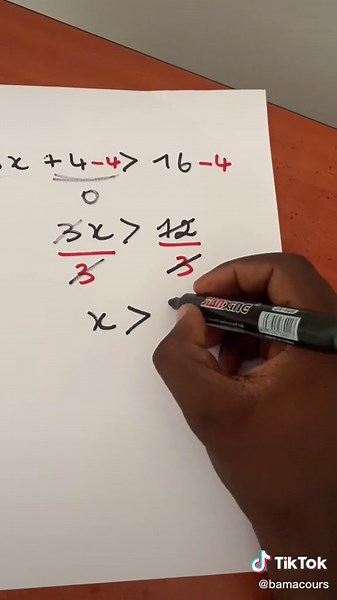 x + 4 - 4 > 16 - 4
0
3x > 12
3 3
x >
TikTok
@bamacours